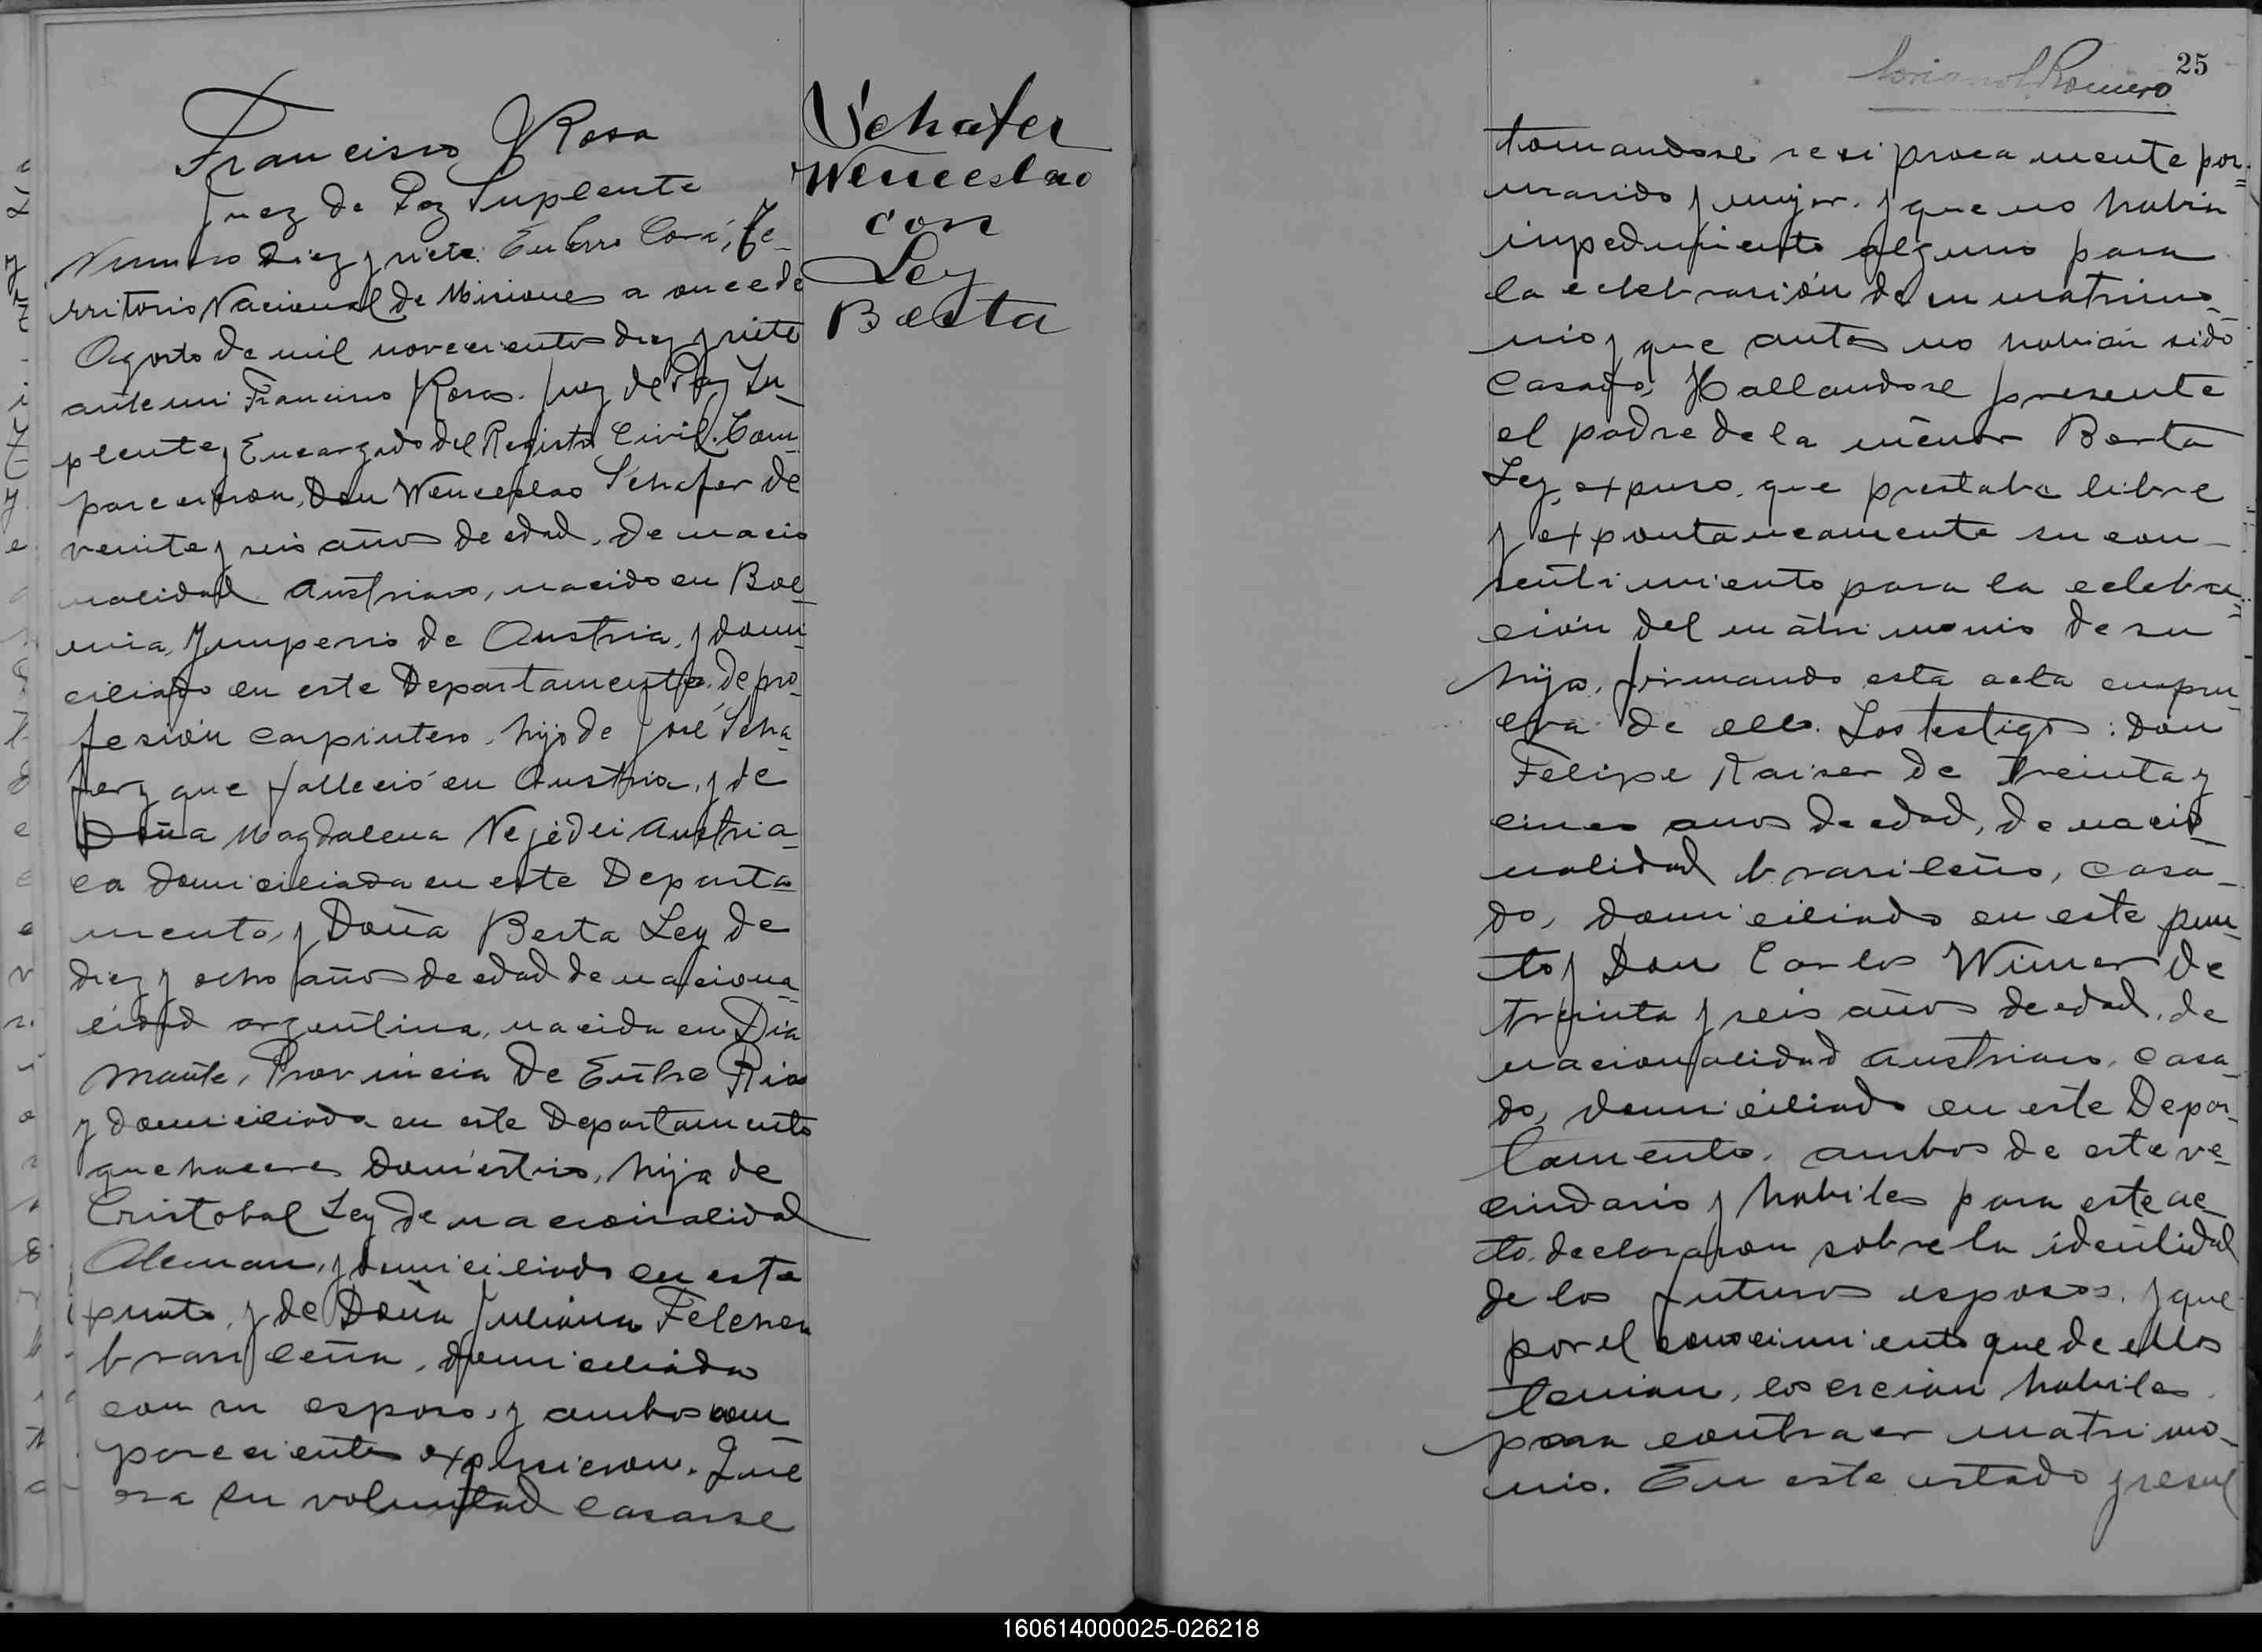 Francisco Rosa
Juez de Paz Suplente
Numero Diez y siete. En Cerro Corá, Te-
rritorio Nacional de Misiones a once de
Agosto de mil novecientos diez y siete
ante mi Francisco Rosas. Juez de Paz Su-
plente y Encargado del Registro Civil. Com-
parecieron, Don Wenceslao Schafer de
veinte y seis años de edad, de nacio
nalidad Austriaco, nacido en Boe-
mia, Ymperio de Austria, y domi-
ciliado en este Departamento, de pro-
fesión carpintero, hijo de José Scha-
fer y que falleció en Austria, y de
Doña Magdalena Nejédli Austria-
ca domiciliada en este Departa-
mento, y Doña Berta Ley de
diez y ocho años de edad de naciona-
lidad argentina, nacida en Dia
mante, Provincia De Entre Rios
y domiciliada en este Departamento
que haceres Domestico, hija de
Cristobal Ley de nacionalidad
Aleman, y domiciliado en este
punto, y de Doña Juliana Felcher
brasileña, domiciliada
con su esposo, y ambos com-
parecientes expusieron. Que
era su voluntad casarse
Schafer
Wenceslao
con
Ley
Berta
25
Romero
tomandose resiprocamente por
marido y mujer. y que no habia
impedimento alguno para
la celebrasión de su matrimo-
nio y que antes no habian sido
Casados, Hallandose presente
el padre de la menor Berta
Ley, expuso, que prestaba libre
y expontaneamente su con-
sentimiento para la celebra-
ción del matrimonio de su
hija, firmando esta acta en pru-
eva de ello. Los testigos: Don
Felipe Kaiser de treinta y
cinco anos de edad, de nacio-
nalidad brasileño, casa-
do, domiciliado en este pun-
to y Don Carlos Wimer de
treinta y seis años de edad, de
nacionalidad Austriaco, casa-
do, domiciliado en este Depar-
tamento, ambos de este ve-
cindario y habiles para este ac-
to declararon sobre la identidad
de los futuros esposos, y que
por el conocimiento que de ellos
tenian, los creian habiles
para contraer matrimo-
nio. En este estado y resul
160614000025-026218